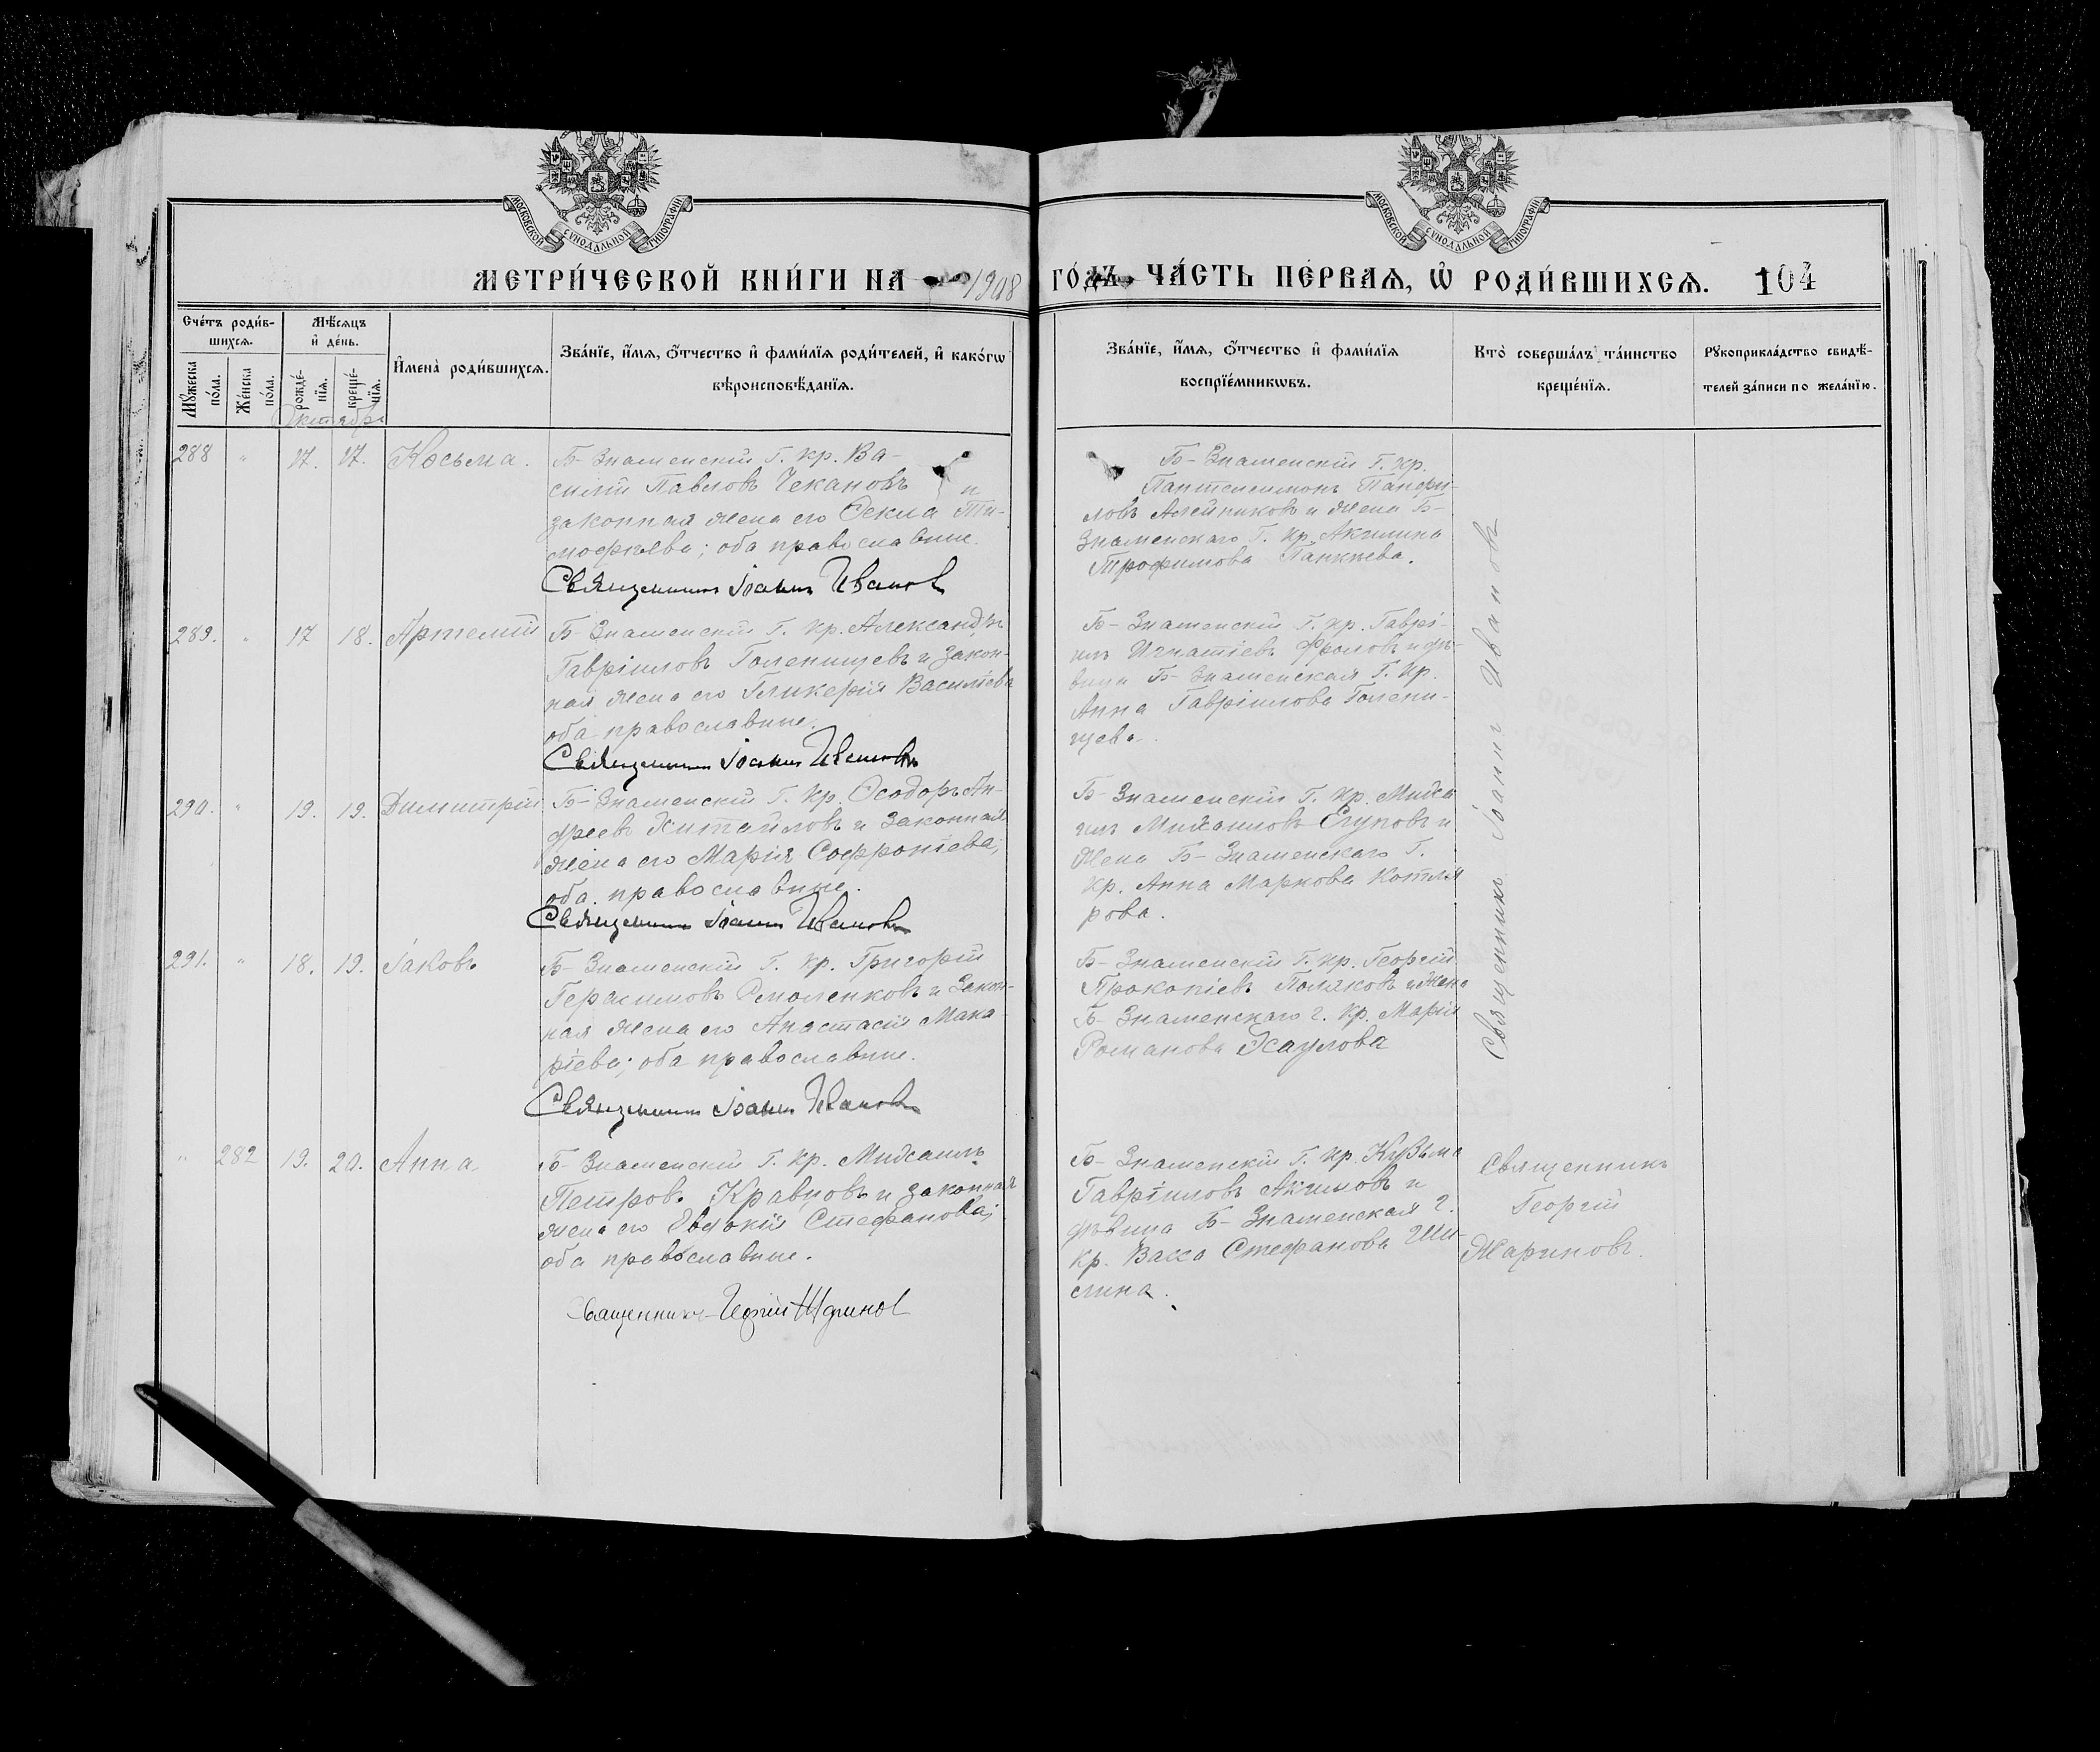 МОСКОВСКОЙ СУНОДАЛЬНОЙ ТИПОГРАФІИ
МОСКОВСКОЙ СУНОДАЛЬНОЙ ТИПОГРАФІИ
МЕТРИ́ЧЕСКОЙ КНИ́ГИ НА 1908 ГО́ДЪ ЧА́СТЬ ПЕ́РВАѦ, Ѽ РОДИ́ВШИХСѦ. 104
Сче́тъ роди́в-
шихсѧ.
Мꙋжеска по́ла.
Же́нска по́ла.
Мѣ́сѧцъ
и҆ де́нь.
рожде́-
нїѧ.
креще́-
нїѧ.
И҆мена̀ роди́вшихсѧ.
Зва́нїе, и҆́мѧ, ѻ҆́тчество и҆ фами́лїѧ роди́телей, и҆ како́гѡ
вѣроисповѣ́данїѧ.
Зва́нїе, и҆́мѧ, ѻ҆́тчество и҆ фами́лїѧ
воспрїе́мникѡвъ.
Кто̀ соверша́лъ та́инство
креще́нїѧ.
Рꙋкоприкла́дство свидѣ́-
телей за́писи по жела́нїю.
Октябрь
288 " 17. 17. Косьма.
Б-Знаменскій Г. кр. Ва-
силій Павловъ Чекановъ и
законная жена его Ѳекла Ти-
мофѣева; оба православные.
Священникъ Іоаннъ Иванов
Б-Знаменскій Г. кр.
Пантелеимонъ Панфи-
ловъ Алейниковъ и жена Б-
Знаменскаго Г. кр. Акилина
Трофимова Панкѣева.
289. " 17 18. Артемій
Б-Знаменскій Г. кр. Александръ
Гавріиловъ Голенищевъ и закон-
ная жена его Гликерія Василіева
оба православные.
Священникъ Іоаннъ Ивановъ
Б-Знаменскій Г. кр. Гаврі-
илъ Игнатіевъ Фроловъ и дѣ-
вица Б-Знаменская Г. кр.
Анна Гавріилова Голени-
щева.
290. " 19. 19. Димитрій
Б-Знаменскій Г. кр. Ѳеодоръ Ан-
дреевъ Хитайловъ и законная
жена его Марія Софроніева;
оба православные.
Священникъ Іоаннъ Ивановъ
Б-Знаменскій Г. кр. Миха
илъ Михаиловъ Егуновъ и
жена Б-Знаменскаго Г.
кр. Анна Маркова Котля
рова.
291. " 18. 19. Іаковъ
Б-Знаменскій Г. кр. Григорій
Герасимовъ Смоленковъ и закон-
ная жена его Анастасія Мака-
ріева; оба православные.
Священникъ Іоаннъ Ивановъ
Б-Знаменскій Г. кр. Георгій
Прокопіевъ Поляковъ и жена
Б-Знаменскаго г. кр. Марія
Романова Эсаулова
Священникъ Іоаннъ Ивановъ
" 282 19. 20. Анна.
Б-Знаменскій Г. кр. Михаилъ
Петровъ Кравцовъ и законная
жена его Евдокія Стефанова;
оба православные.
Священникъ Георгій Жариновъ
Б-Знаменскій Г. кр. Кузьма
Гавріиловъ Акимовъ и
дѣвица Б-Знаменская г.
кр. Васса Стефанова Ши-
Священникъ
Георгій
Жариновъ.